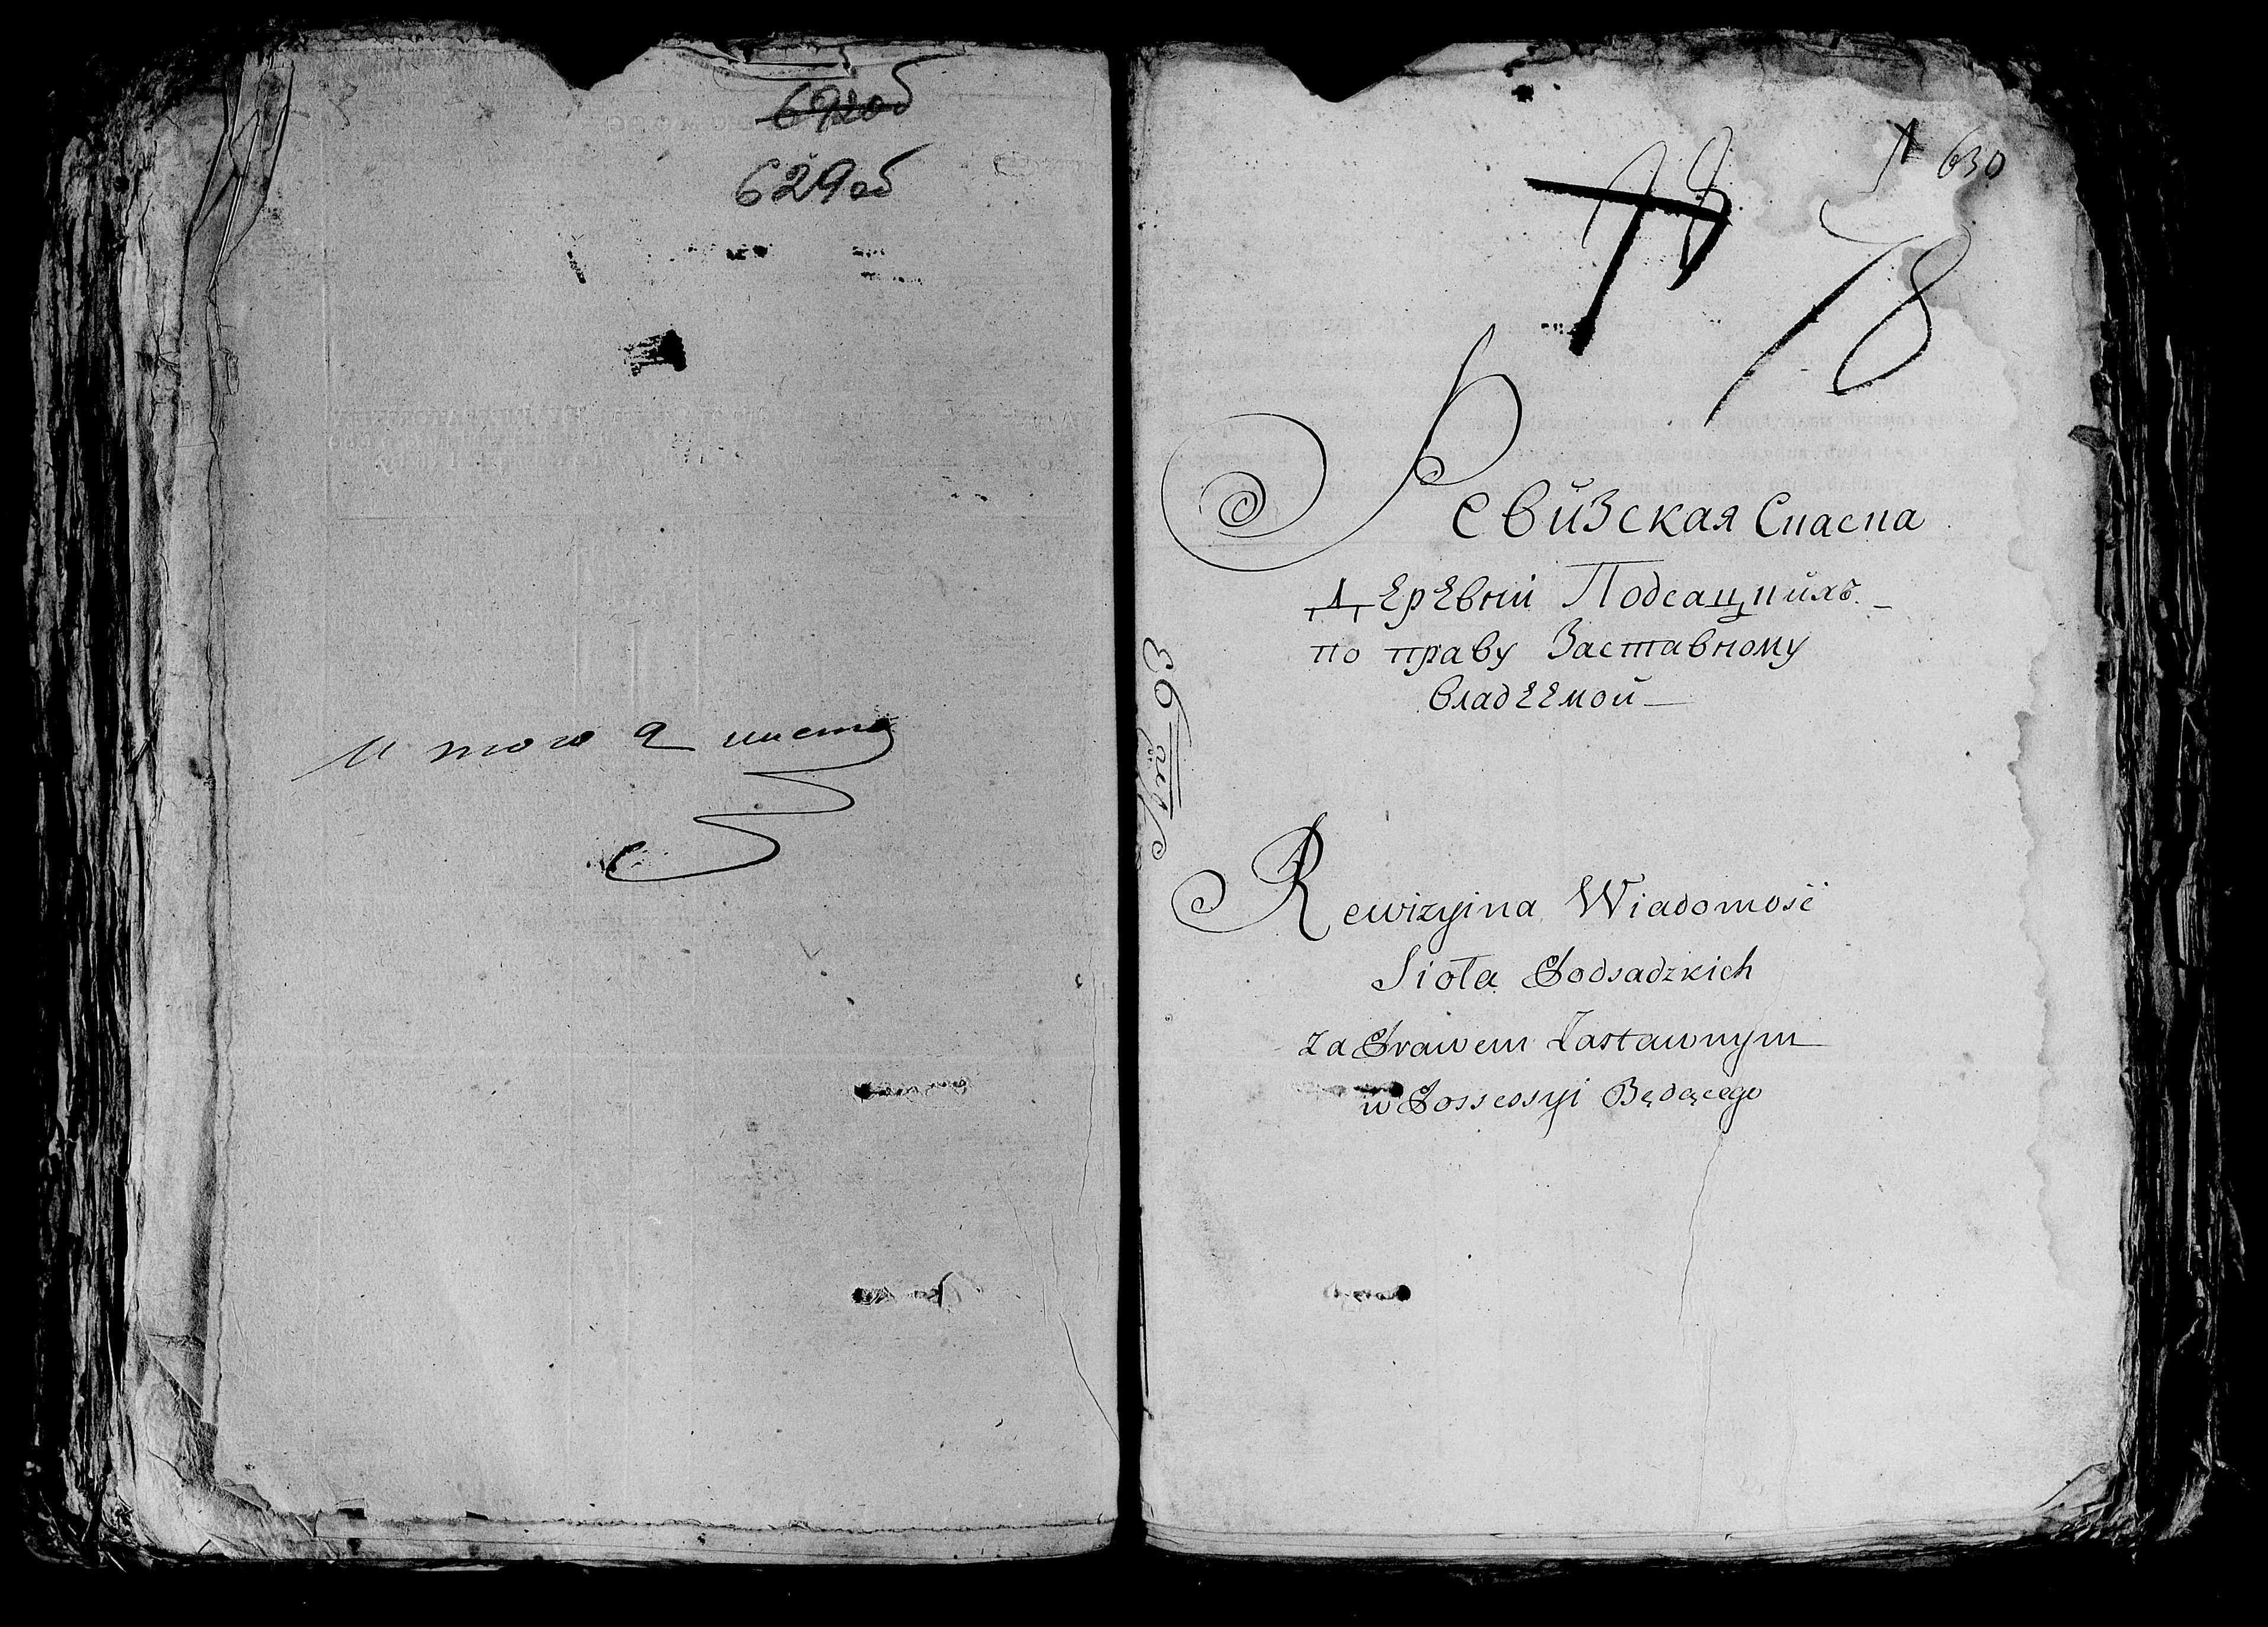 692об
629об
Итого 2 листа
630
78
78
Ревизская Спаспа
Деревни Подсацкихъ
по праву Заставному
владеемой
Rewizyina Wiadomość
Sioła Podsadzkich
za Prawem Zastawnym
w Possessyi Będącego